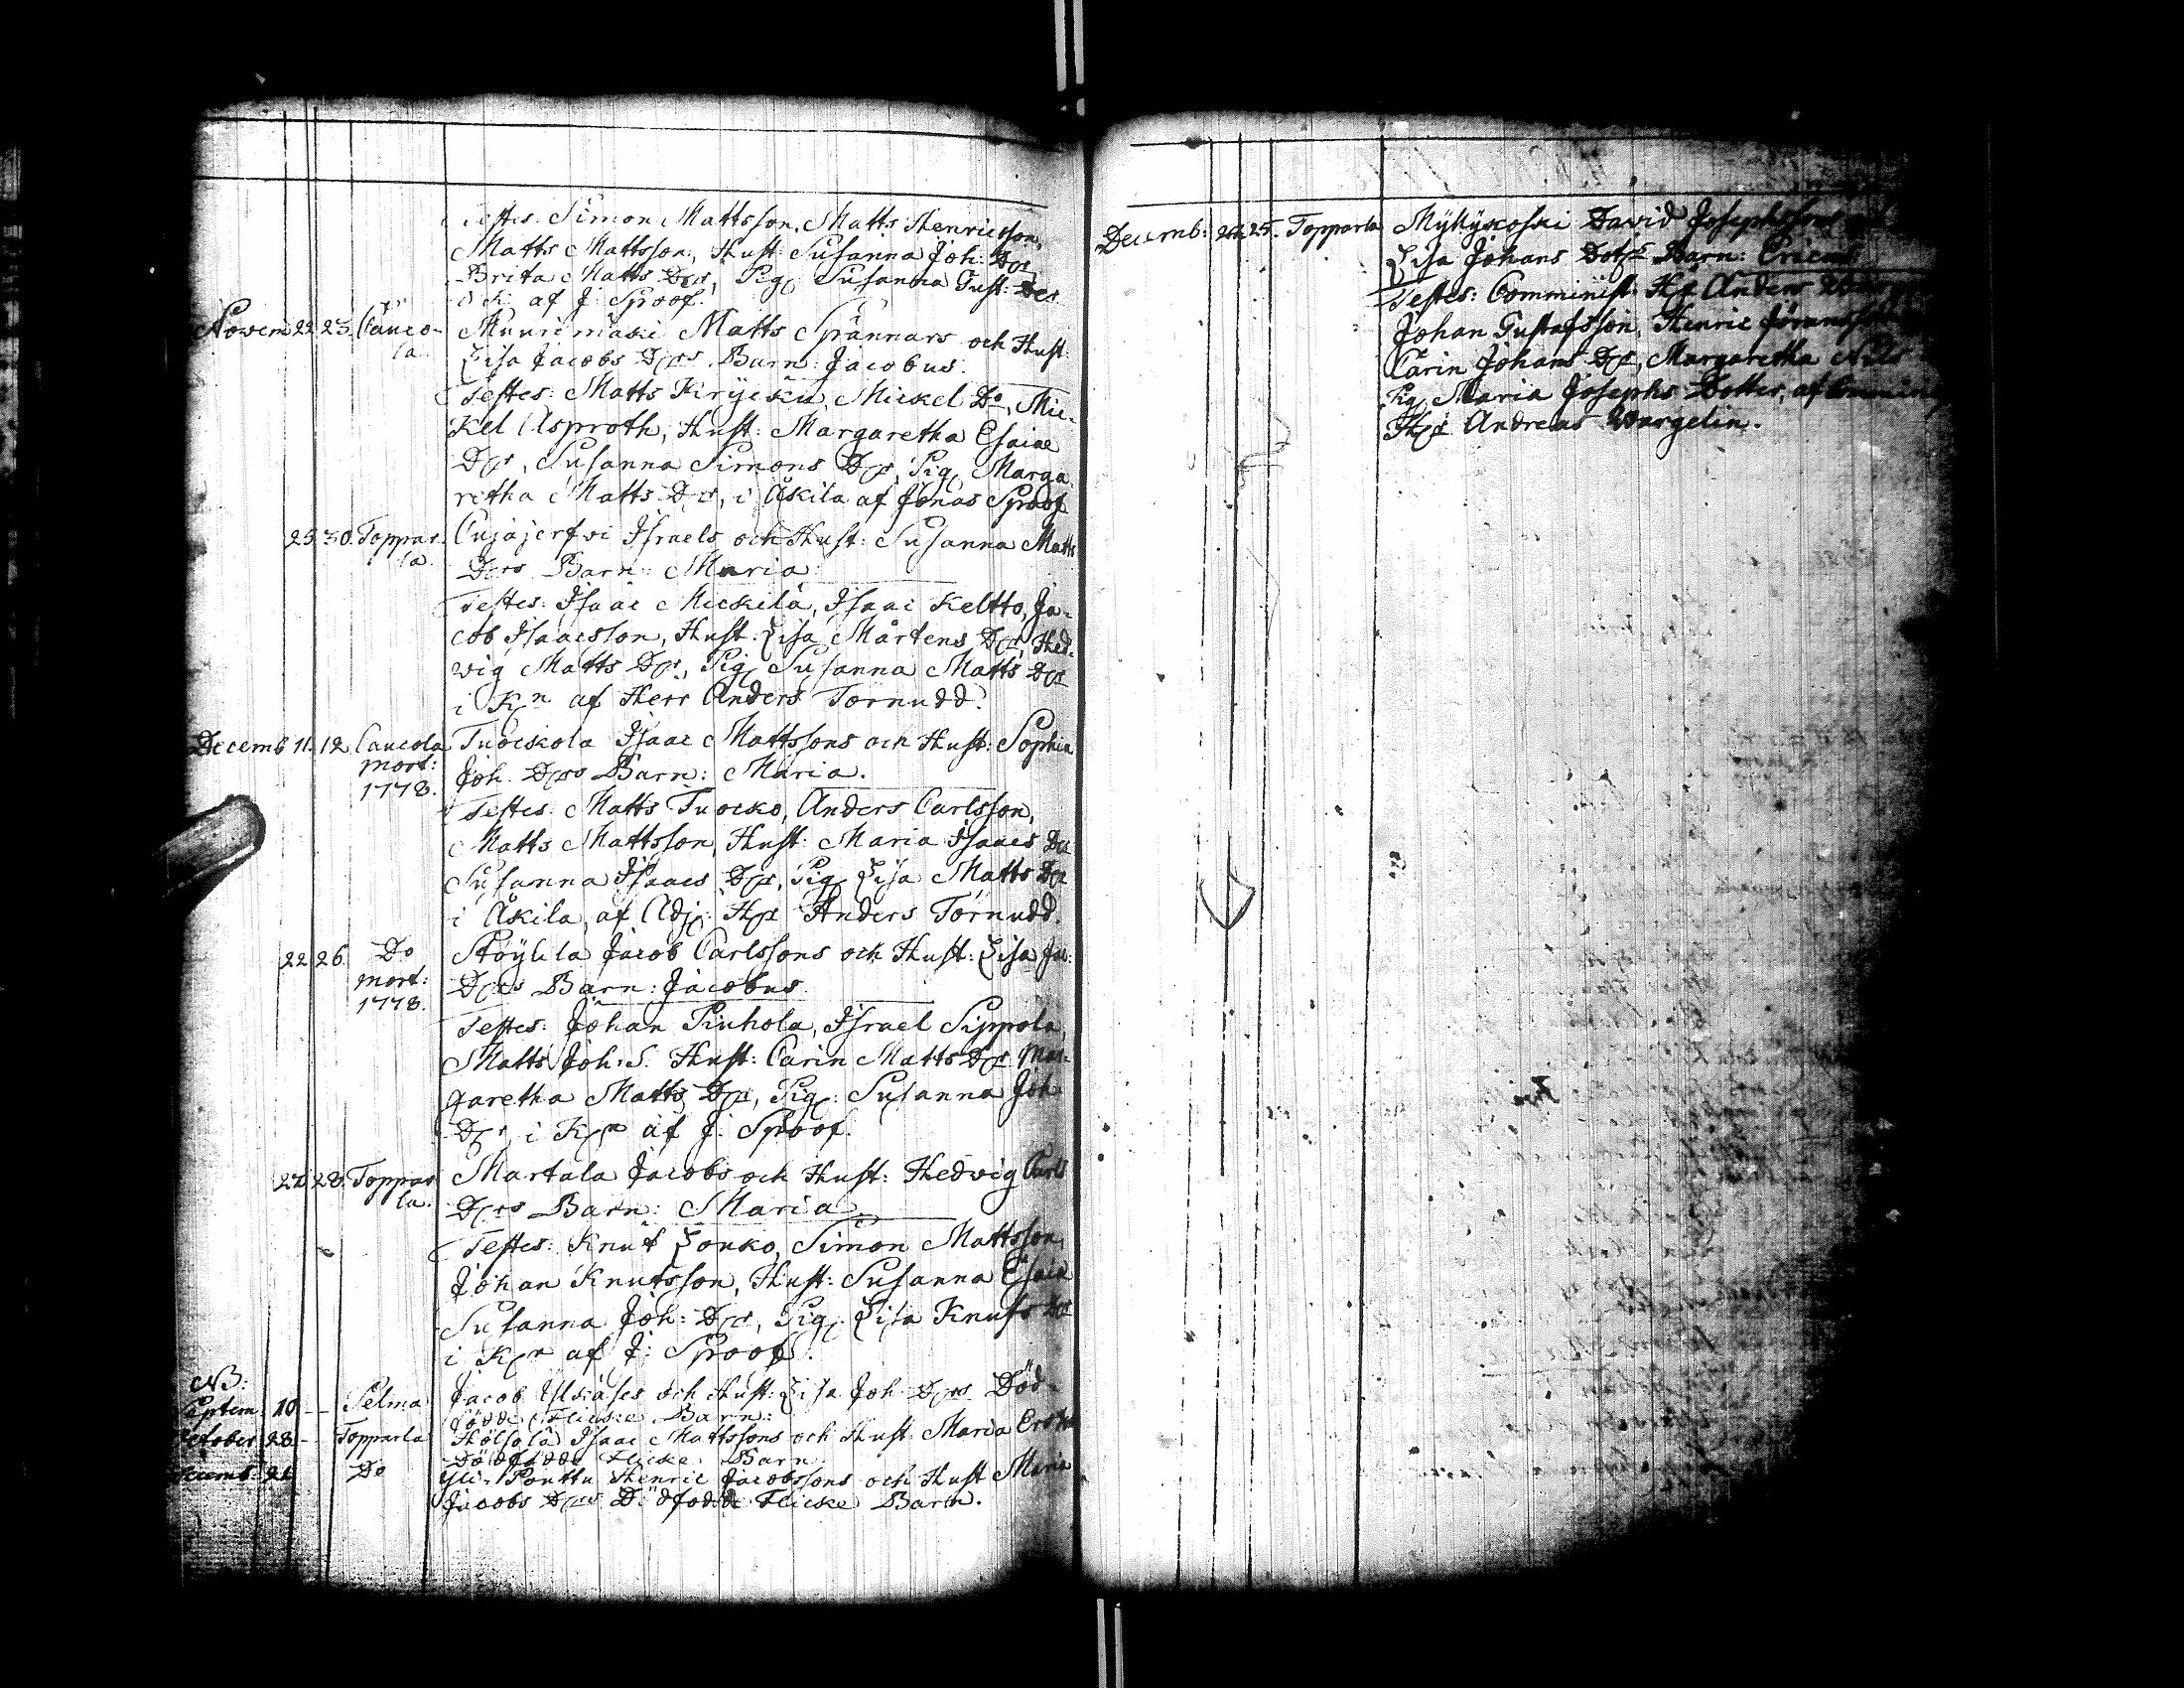 Testes: Simon Mattsson, Matts Henricsson,
Matts Mattsson, Hust: Susanna Joh: Dr
Brita Matts Dr, Pig. Susanna Gust: Dr
i K: af J: Sproof.
Novem 22. 23. Cauco-
la.
Muurimäki Matts Spännars och Hust:
Lisa Jacobs Drs Barn: Jacobus.
Testes: Matts Krycku, Mickel Do, Mic-
kel Asproth, Hust: Margaretha Esaiae
Dr, Susanna Simons Dr, Pig. Marga
retha Matts Dr, i Äkila af Jonas Sproof
25. 30. Toppar-
la.
Cujajerfvi Israels och Hust: Susanna Matts
Drs Barn: Maria.
Testes: Isaac Mickilä, Isaac Keltto, Ja-
cob Isaacsson, Hust: Lisa Mårtens Dr, Hed-
vig Matts Dr, Pig. Susanna Matts Dr
i Kn af Herr Anders Törnudd.
Decemb 11. 12. Caucola
mort:
1778.
Tuockola Isaac Mattssons och Hust: Sophia
Joh. Drs Barn: Maria.
Testes: Matts Tuocko, Anders Carlsson,
Matts Mattsson, Hust: Maria Isaacs Dr
Susanna Isaacs Dr, Pig. Lisa Matts Dr
i Äkila, af Adj: Hr Anders Törnudd.
22. 26. Do
mort:
1778.
Jacob Carlssons och Hust: Lisa Ja:
Drs Barn: Jacobus.
Testes: Johan Piuhola, Israel Sippola,
Matts Joh: S. Hust: Carin Matts Dr Mar-
garetha Matts Dr, Pig: Susanna Joh
Dr i Kn af J: Sproof.
28. Toppar
la.
Martala Jacobs och Hust: Hedvig Carls
Drs Barn: Maria.
Testes: Knut Louko, Simon Mattsson,
Johan Knutsson, Hust: Susanna Esaiae
Susanna Joh: Dr, Pig: Lisa Knuts Dr
i Kn af J: Sproof.
NB:
Septem: 10. — Selma
Jacob och Hust: Lisa Joh: Drs Död-
födde Flicke Barn:
October 28. — Topparla
Hölsölä Isaac Mattssons och Hust: Maria
Dödfödde Flicke Barn
Decemb: 21. Do
Yli-Ponttu Henric Jacobssons och Hust Maria
Jacobs Drs Dödfödde Flicke Barn.
Decemb: 25. Topparla
Myllykoski David Josephssons
Lisa Johans Dotrs Barn: Ericus
Testes: Comminist: Hr Anders
Johan Gustafsson, Henric
Carin Johans Dr, Margaretha Nils
Pig. Maria Josephs Dotter, af
Hr Andreas Wargelin.